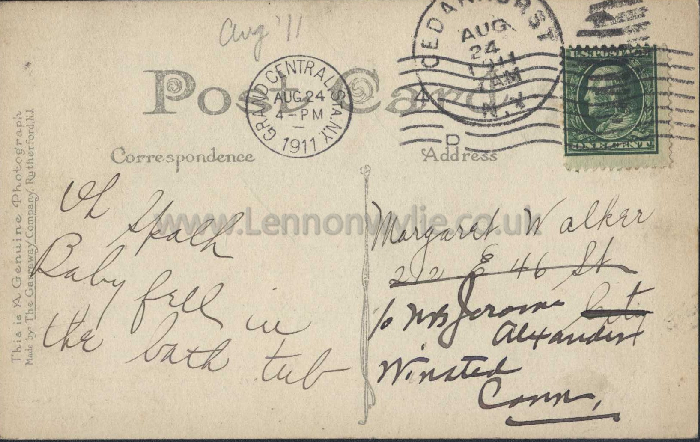 Aug '11
CEDARHURST
AUG
24
1911
7 AM
N.Y.
GRAND CENTRAL STA. N.Y.
AUG 24
4 - PM
1911
Post Card
D
Correspondence
Address
This is A Genuine Photograph
Made by The Garraway Company, Rutherford, N.J.
www.Lennonwylie.co.uk
Oh
Baby fell in
the bath tub
Margaret Walker
212 E 46 St
City
c/o Mrs Jerome
Alexander
Winsted
Conn,